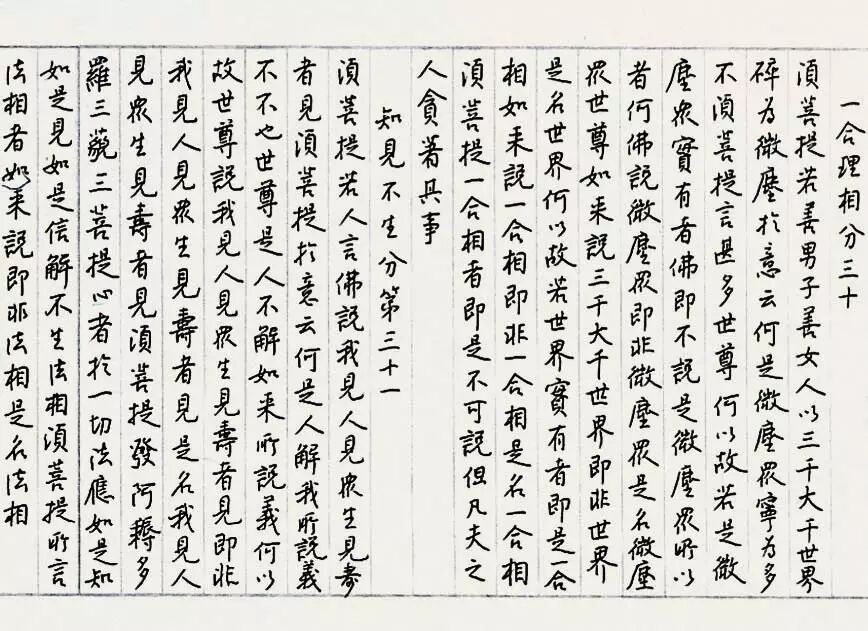 一合理相分三十
須菩提若善男子善女人以三千大千世界
碎為微塵於意云何是微塵眾寧為多
不須菩提言甚多世尊何以故若是微
塵眾實有者佛即不說是微塵眾所以
者何佛說微塵眾即非微塵眾是名微塵
眾世尊如来說三千大千世界即非世界
是名世界何以故若世界實有者即是一合
相如来說一合相即非一合相是名一合相
須菩提一合相者即是不可說但凡夫之
人貪著其事
知見不生分第三十一
須菩提若人言佛說我見人見眾生見壽
者見須菩提於意云何是人解我所說義
不不也世尊是人不解如来所說義何以
故世尊說我見人見眾生見壽者見即非
我見人見眾生見壽者見是名我見人
見眾生見壽者見須菩提發阿耨多
羅三藐三菩提心者於一切法應如是知
如是見如是信解不生法相須菩提所言
法相者如来說即非法相是名法相